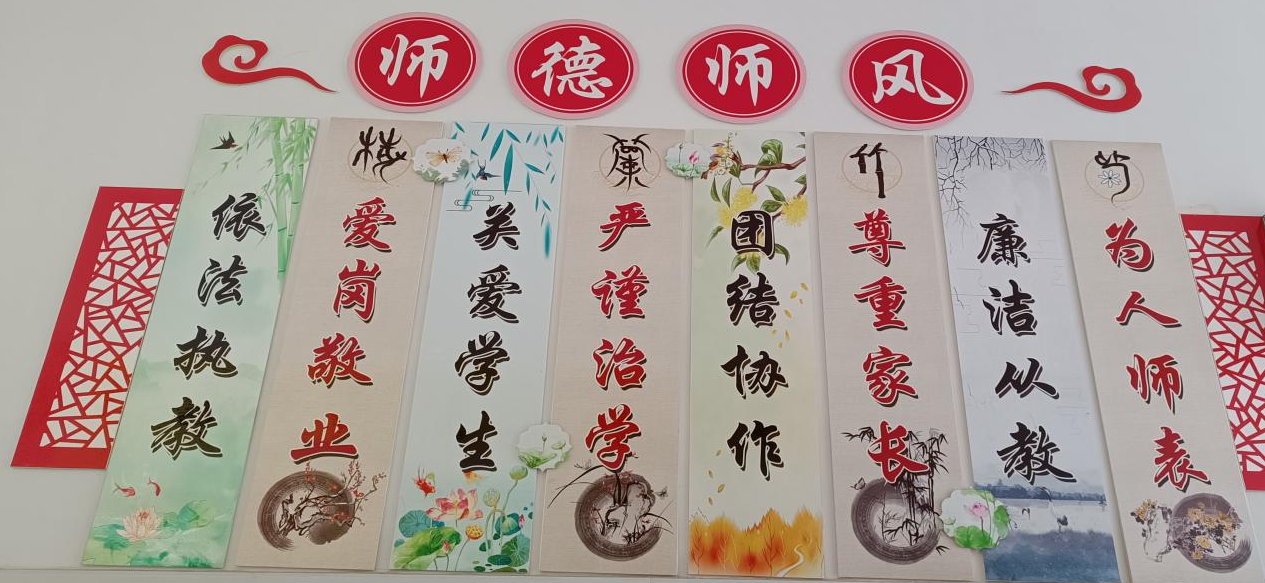 师德师风
依法执教
梅
爱岗敬业
关爱学生
蘭
严谨治学
团结协作
竹
尊重家长
廉洁从教
为人师表